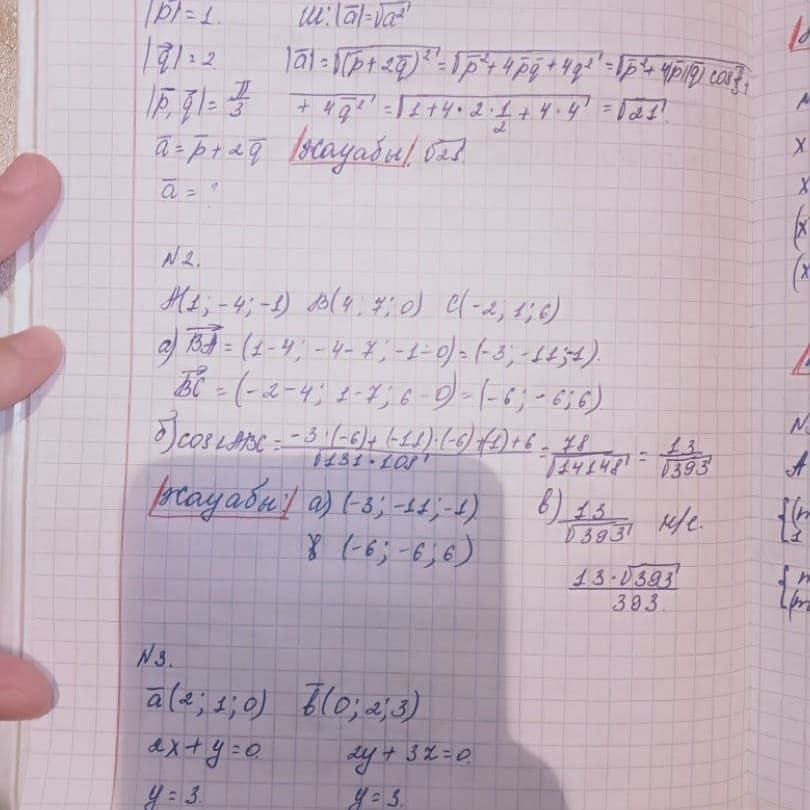 |p̅| = 1. Ш: |a̅| = √a̅²
|q̅| = 2. |a̅| = √(p̅ + 2q̅)² = √p̅² + 4p̅q̅ + 4q̅² = √p̅² + 4|p̅||q̅| cos π/3 +
|p̅, q̅| = π/3 + 4q̅² = √1 + 4 · 2 · 1/2 + 4 · 4 = √21.
a̅ = p̅ + 2q̅ |Жауабы:| √21
a̅ = ?
N2.
A(1; -4; -1) B(4; 7; 0) C(-2; 1; 6)
а) BA = (1-4; -4-7; -1-0) = (-3; -11; -1).
BC = (-2-4; 1-7; 6-0) = (-6; -6; 6)
б) cos∠ABC = -3·(-6)+(-11)·(-6)+(-1)+6 / √131·108 = 78/√14148 = 13/√393
|Жауабы:| а) (-3; -11; -1) в) 13/√393 н/е.
(-6; -6; 6)
13·√393/393
N3.
a̅(2; 1; 0) b̅(0; 2; 3)
2x + y = 0. 2y + 3z = 0.
y = 3. y = 3.